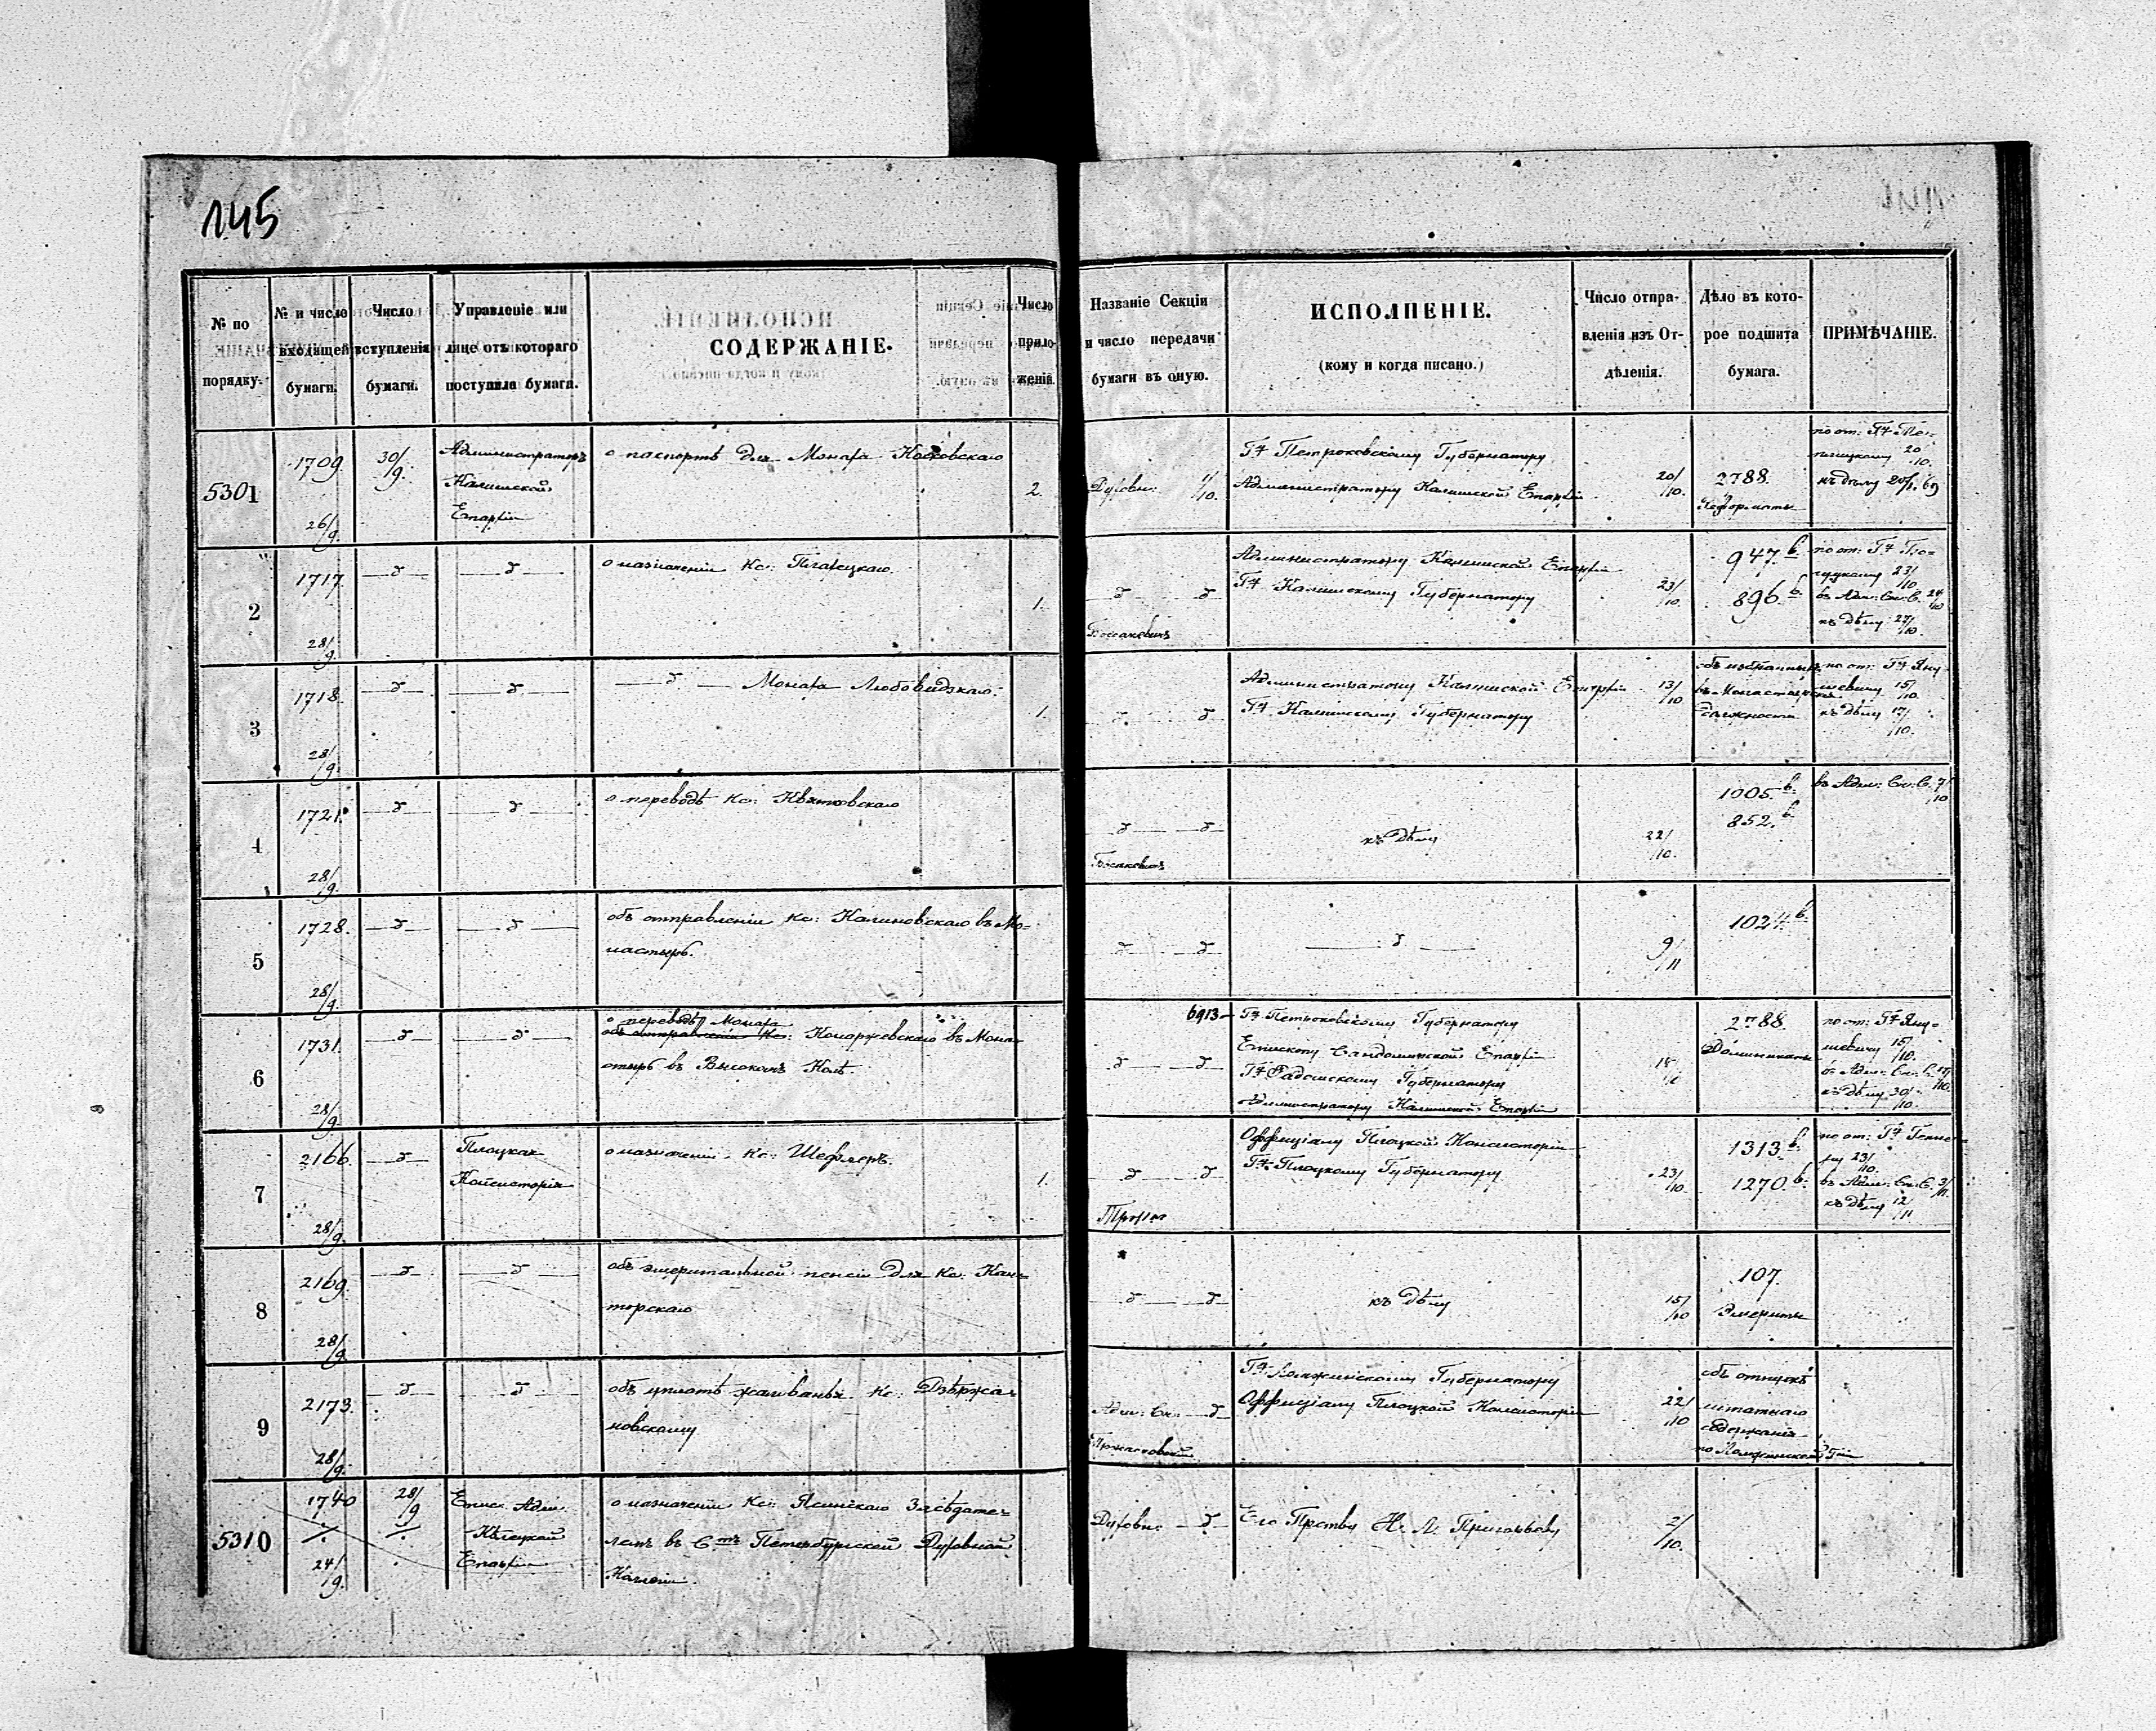 145
№ по порядку.
№ и число входящей бумаги.
Число вступленія бумаги.
Управленіе или лице отъ котораго поступила бумага.
СОДЕРЖАНІЕ.
Число приложеній.
Названіе Секціи и число передачи бумаги въ оную.
ИСПОЛНЕНІЕ.
(кому и когда писано.)
Число отправленія изъ Отдѣленія.
Дѣло въ которое подшита бумага.
ПРИМѢЧАНІЕ.
5301
1709.
26/9.
30/9.
Администраторъ
Калишской
Епархіи
о паспортѣ для Монаха
2.
Духовн: 1/10.
Гну Петроковскому Губернатору
Администратору Калишской Епархіи
20/10.
2788.
Реформаты
къ дѣлу
2
1717.
28/9.
о назначеніи Кс:
1.
Администратору Калишской Епархіи
Гну Калишскому Губернатору
23/10.
947.в.
896.в.
въ Адм: Ск: С. 24/10
къ дѣлу 27/10.
3
1718.
28/9.
Монаха Любовидзкаго.
1.
Администратору Калишской Епархіи
Гну Калишскому Губернатору
13/10
должности
по от: Гну Янушевичу 15/10.
къ дѣлу 17/10.
4
1721.
28/9.
о переводѣ Кс: Квятковскаго
къ дѣлу
22/10.
1005.в.
852.в.
въ Адм: Ск: С. 7/10
5
1728.
28/9.
объ отправленіи Кс: Калиновскаго въ Мо=
настырь.
9/11
1024.в.
6
1731.
28/9.
о переводѣ Монаха
объ отправленіи Кс: Конаржевскаго въ Мона=
стырь в Высокомъ Колѣ.
6913
Гну Петроковскому Губернатору
Епископу Сандомирской Епархіи
Гну Радомскому Губернатору
Администратору Калишской Епархіи
2788.
Доминиканы
по от: Гну Янушевичу 15/10.
къ дѣлу 30/10.
7
2166.
28/9.
Плоцкая
Консисторія
о назначеніи Кс: Шефлеръ.
1.
Оффиціалу Плоцкой Консисторіи
Гну Плоцкому Губернатору
23/10.
1313.в.
1270.в.
въ Адм: Ск: С. 3/11.
къ дѣлу 12/11
8
2169.
28/9.
объ эмеритальной пенсіи для Кс: Кан=
торскаго
къ дѣлу
15/10
107.
Эмериты
9
2173.
28/9.
объ уплатѣ жалованья Кс: Дзѣржа=
новскому
Адм: Ск:
Гну Ломжинскому Губернатору
Оффиціалу Плоцкой Консисторіи
22/10
объ отпускѣ
штатнаго
содержанія
по Ломжинской Губ
5310
1740
24/9.
28/9
Еписк. Адм.
Кѣлецкой
Епархіи
о назначеніи Кс: Ясинскаго Засѣдате=
лемъ в Стъ Петербургской Духовной
Коллегіи.
Духовн:
Его Прству
2/10.